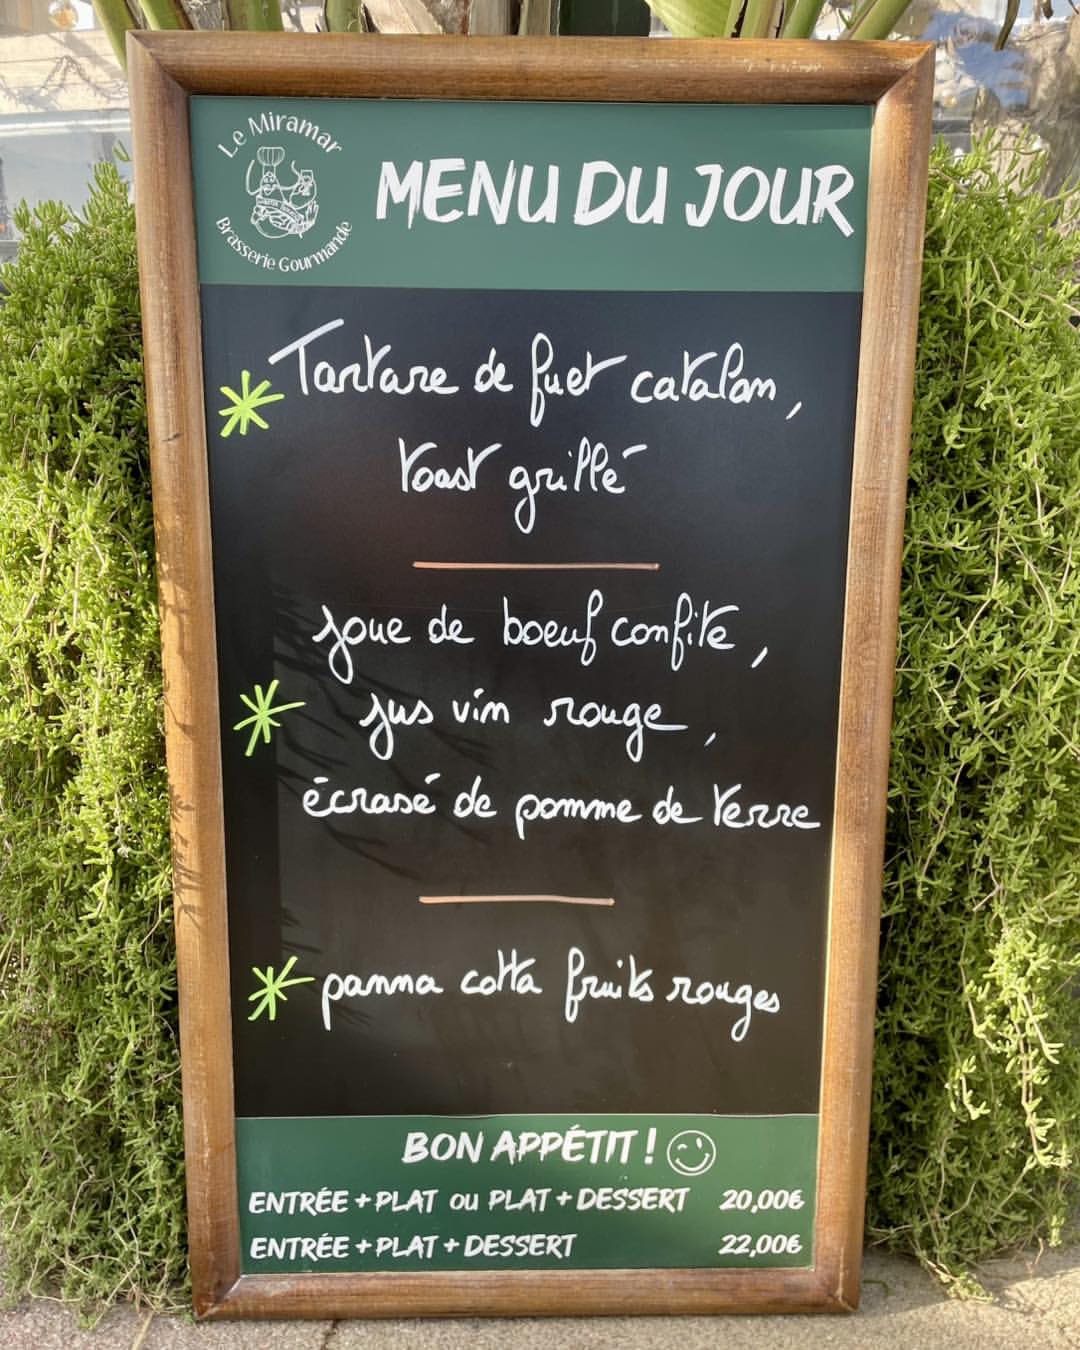 Le Miramar
Brasserie Gourmande
MENU DU JOUR
Tartare de fuet catalan,
toast grillé
joue de boeuf confite,
jus vin rouge,
écrasé de pomme de terre
panna cotta fruits rouges
BON APPÉTIT !
ENTRÉE + PLAT OU PLAT + DESSERT 20,00€
ENTRÉE + PLAT + DESSERT 22,00€